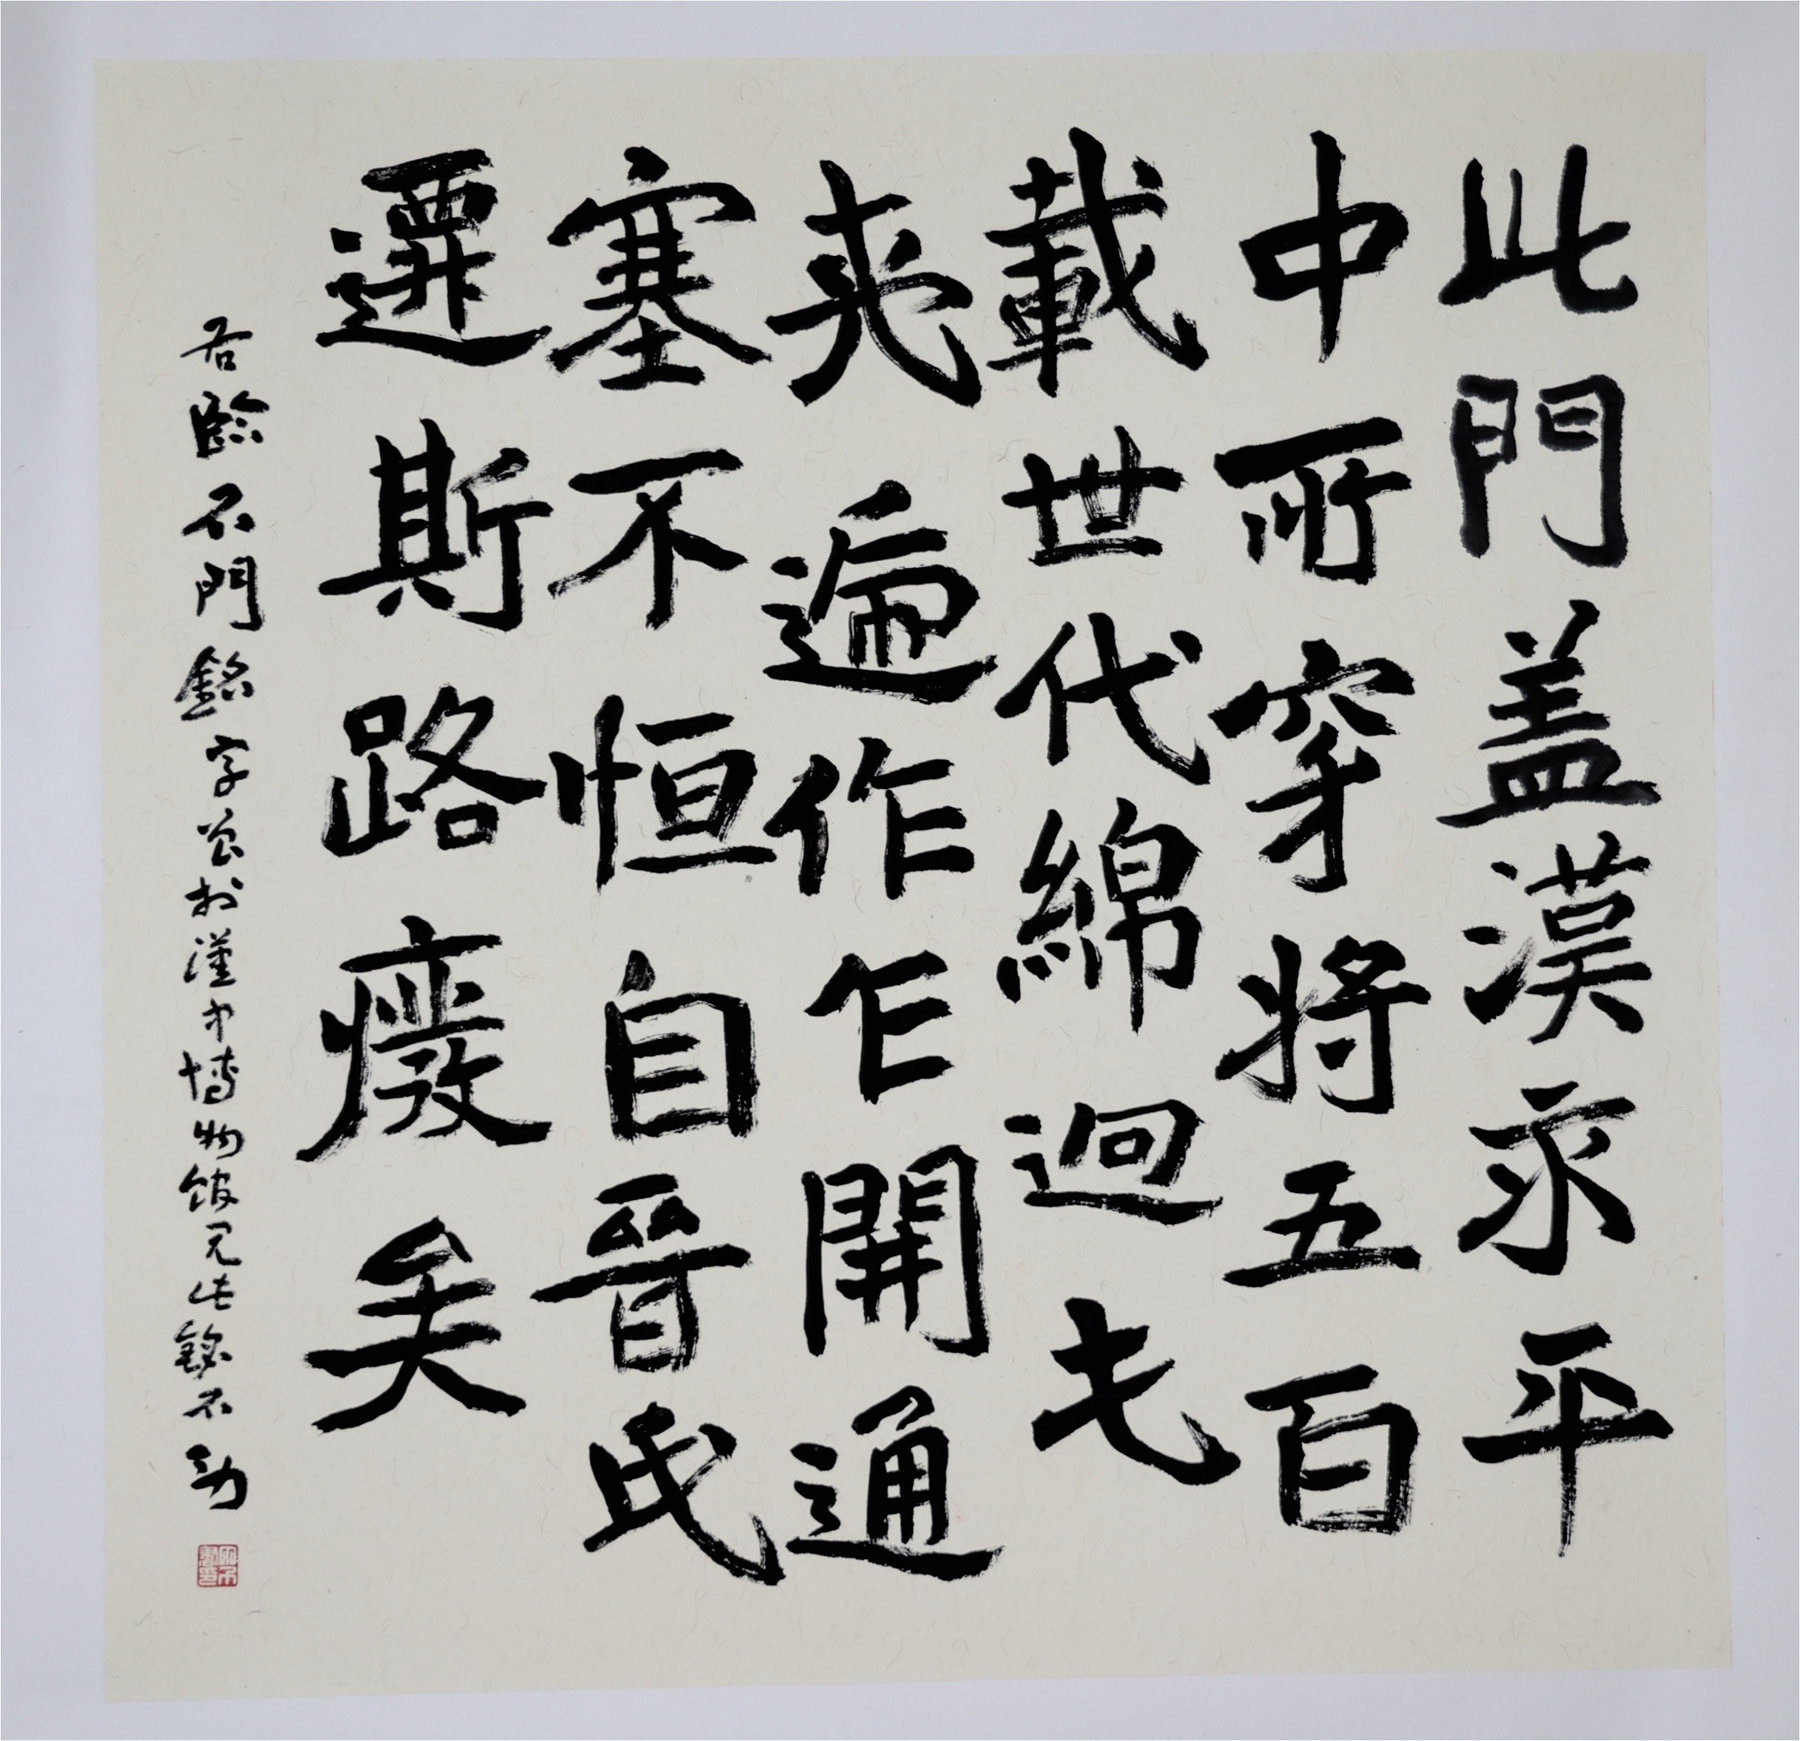 此門盖漢永平
中所穿將五百
載世代綿迴屯
夷遞作乍開通
塞不恒自晉氏
遷斯路廢矣
右臨石門銘字曾於漢中博物館見此銘石